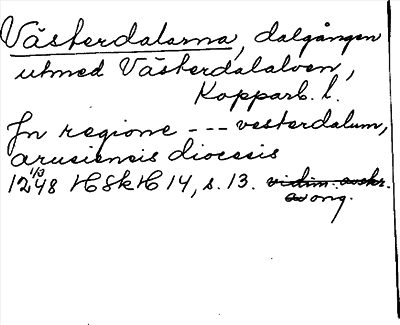 Västerdalarna, dalgången
utmed Västerdalälven,
Kopparb. l.
In regione --- vesterdalum,
arusiensis diocesis
12 1/3 48 HSkH 14, s. 13. vidim. avskr.
av orig.